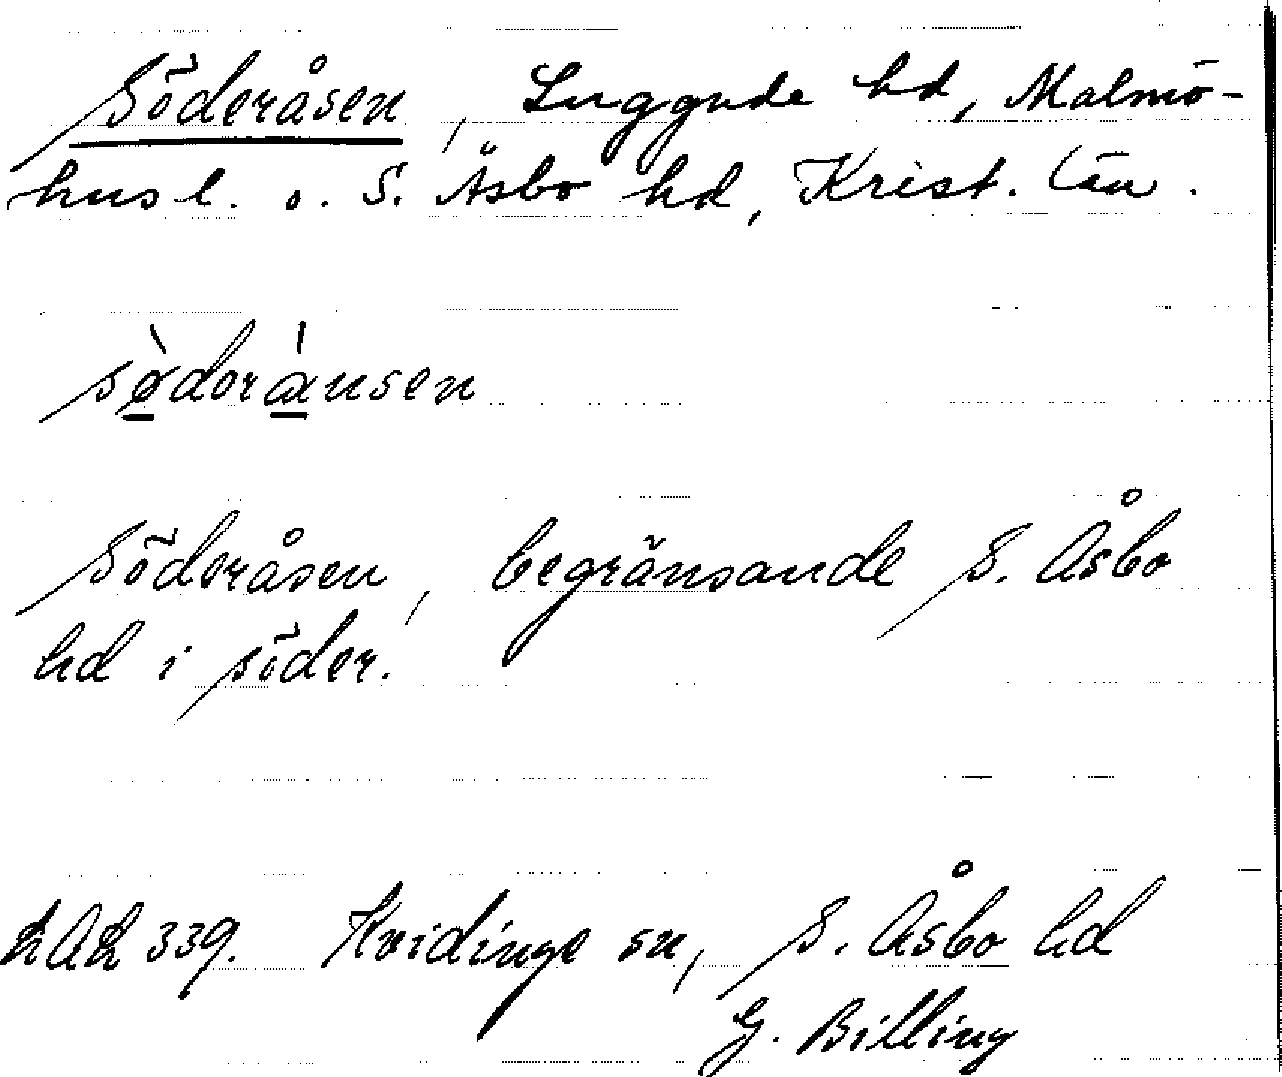 Söderåsen, Luggude hd, Malmö-
hus l. o. S. Åsbo hd, Krist. län.
Söderåsen, begränsande S. Åsbo
hd i söder.
339. Hvidinge sn, S. Åsbo hd
G. Billing